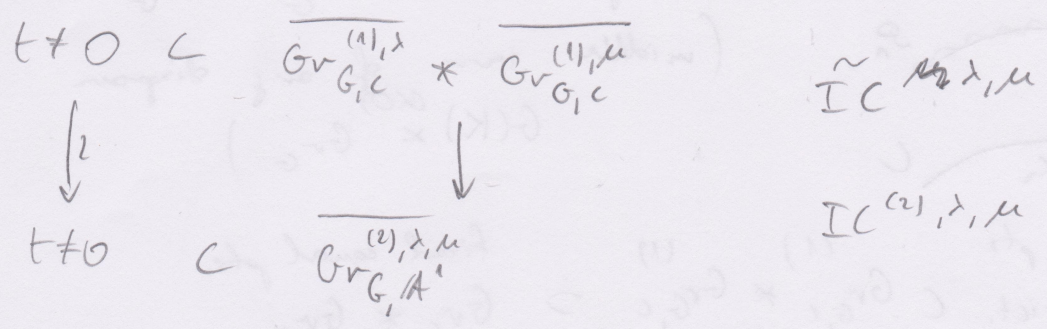 t≠0 ⊂ \overline{Gr_{G,C}^{(1),λ}} * \overline{Gr_{G,C}^{(1),μ}} \widetilde{IC}^{λ,μ}
↓≀ ↓
t≠0 ⊂ \overline{Gr_{G,A^1}^{(2),λ,μ}} IC^{(2),λ,μ}